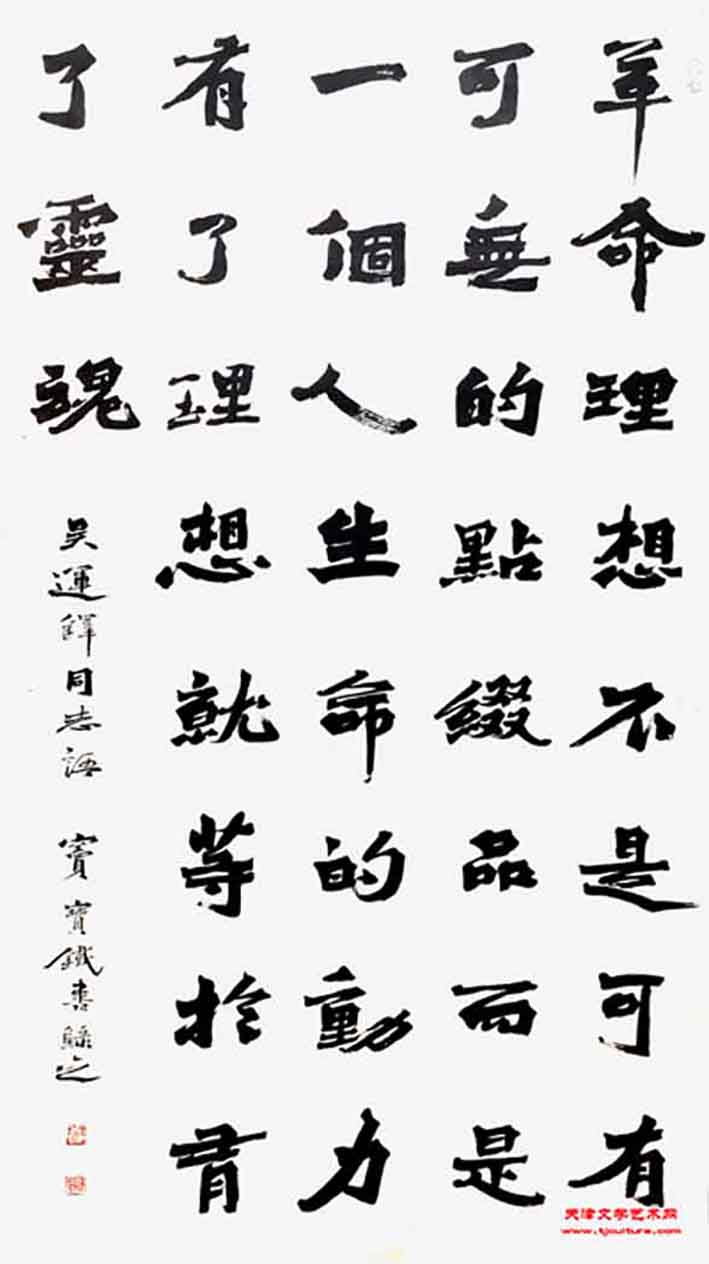 革命理想不是可有
可無的點綴品而是
一個人生命的動力
有了理想就等於有
了靈魂
吴運鐸同志語 竇寶鐵書
天津文学艺术网
www.tjculture.com